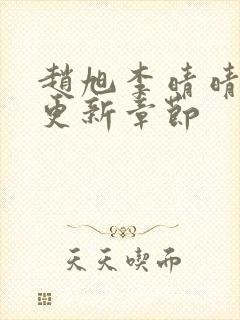 趙旭李晴晴
更新章節
天天喫而